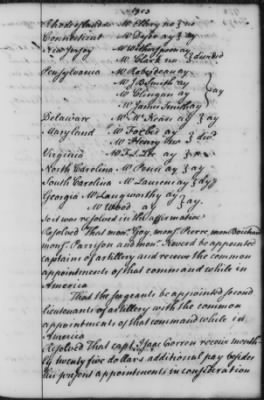 Rhode Island Mr Ellery no } no
Connecticut Mr Dyer ay } ay
New Jersey Mr Witherspoon ay
Mr Clark no } divided
Pensylvania Mr Roberdeau ay
Mr J B Smith ay
Mr Clingan ay
Mr James Smith ay } ay
Delaware Mr McKean ay } ay
Maryland Mr Forbes ay
Mr Henry no } divd
Virginia Mr F. L. Lee ay
North Carolina Mr Penn ay } ay
South Carolina Mr Laurens ay } ay
Georgia Mr Langworthy ay
Mr Wood ay } ay
So it was resolved in the affirmative
Resolved That monsr Goy, monsr Pierre, monsr
monsr Parrison and monsr be appointed
captains of artillery and receive the common
appointments of that command while in
America
That the sergeants be appointed second
lieutenants of artillery with the common
appointments of that command while in
America
Resolved That capt receive month
ly twenty five dollars additional pay besides
his present appointments in consideration